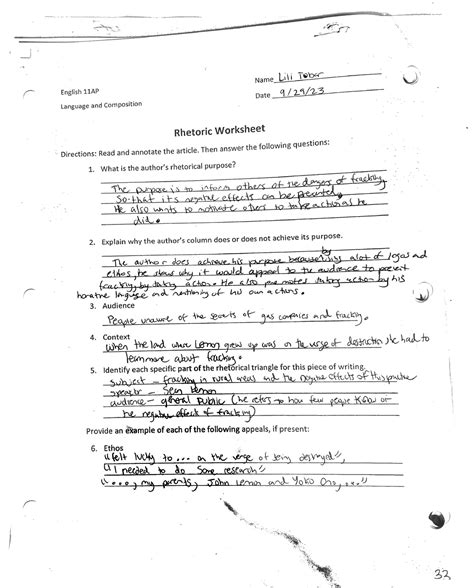 Name Lili Tober
English 11AP
Date 9/29/23
Language and Composition
Rhetoric Worksheet
Directions: Read and annotate the article. Then answer the following questions:
1. What is the author's rhetorical purpose?
The purpose is to inform others of the dangers of fracking
So that its negative effects can be prevented.
He also wants to motivate others to take action as he
did.
2. Explain why the author's column does or does not achieve its purpose.
The author does achieve his purpose because by using a lot of logos and
ethos, he shows why it would appeal to the audience to prevent
fracking by taking action. He also promotes taking action by his
narrative language and mentioning of his own actions.
3. Audience
People unaware of the secrets of gas companies and fracking.
4. Context
When the land where Lennon grew up was on the verge of destruction, he had to
learn more about fracking.
5. Identify each specific part of the rhetorical triangle for this piece of writing.
Subject - fracking in rural areas and the negative effects of this practice
speaker - Sean Lennon
audience - general public (he refers to how few people know of
the negative effect of fracking)
Provide an example of each of the following appeals, if present:
6. Ethos
"felt lucky to ... on the verge of being destroyed",
"I needed to do some research"
"..., my parents, John Lennon and Yoko Ono, ..."
32